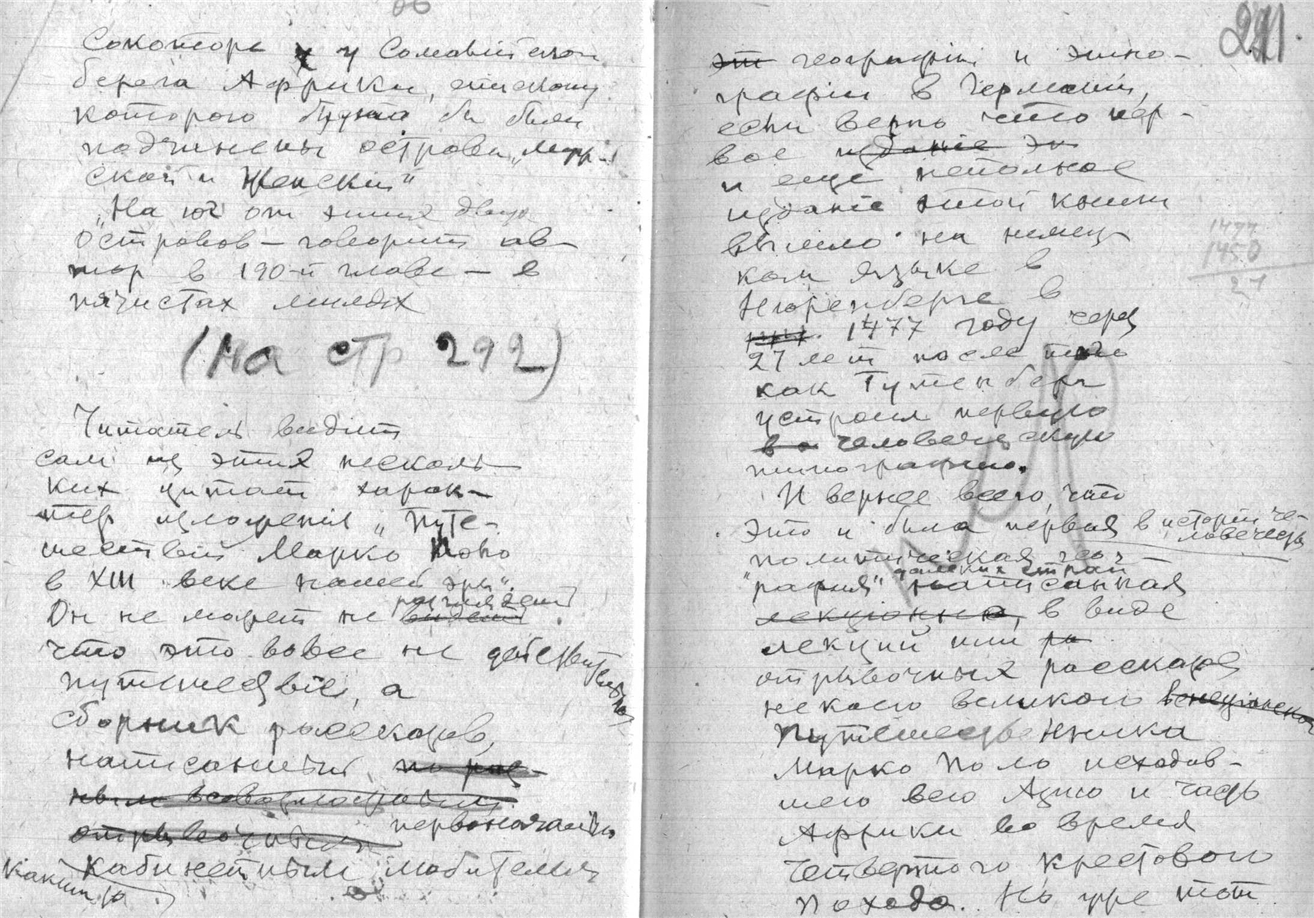 Сокоторь у Сомалийской
берега Африки, епископу
которого будто бы были
подчинены острова „Муж-
ской и Женский“
„На юг от этих двух
островов — говорит ав-
тор в 190-й главе — в
пятистах милях
(на стр 292)
Читатель видит
сам из этих несколь-
ких цитат харак-
тер изложения „Путе-
шествий Марко Поло
в XIII веке нашей эры“.
Он не может не видеть разглядеть
что это вовсе не действительное
путешествие, а
сборник рассказов,
написанный по раз-
ным
отрывочным первоначально
каким то кабинетным любителем
291.
эт географии и этно-
графии в Германии,
если верть что пер-
вое издание эт
и еще неполное
издание этой книги
вышло на немец-
ком языке в
Нюренберге в
1477 году через
27 лет после того
как Гутенберг
устроил первую
в о человеческую
типографию.
1477
1450
27
И вернее всего, что
это и была первая в истории че-
ловечества
политическая геог-
рафия" далеких стран написанная
лекционно, в виде
лекций или ра
отрывочных рассказов
некоего великого венецианского
Путешественника
Марко Поло исходив-
шего всю Азию и часть
Африки во время
четвертого крестового
похода. Но уже тот